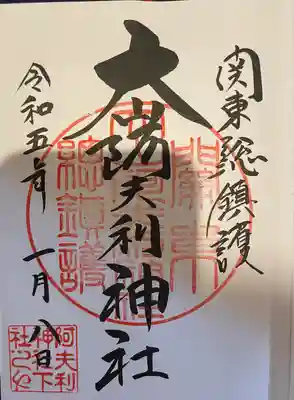 関東総鎮護
大山阿夫利神社
令和五年 一月八日
關東
總鎮護
阿夫利
神社下
社之印